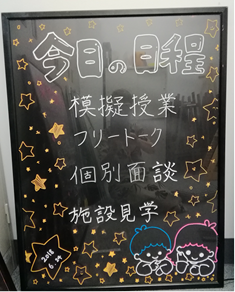 今日の日程
模擬授業
フリートーク
個別面談
施設見学
2018